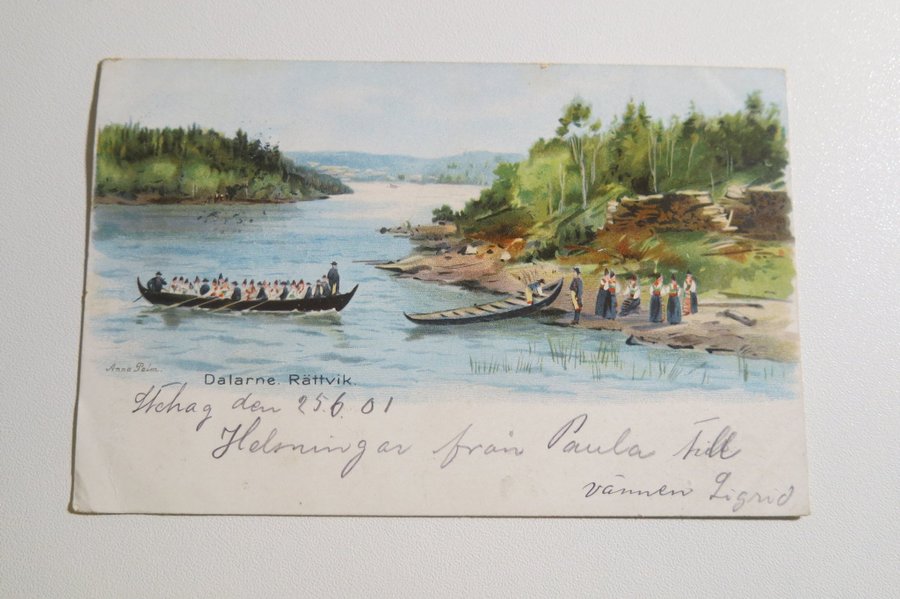 Anna Palm
Dalarne. Rättvik.
Sthag den 25.6.01
Helsningar från Paula till
vännen Sigrid